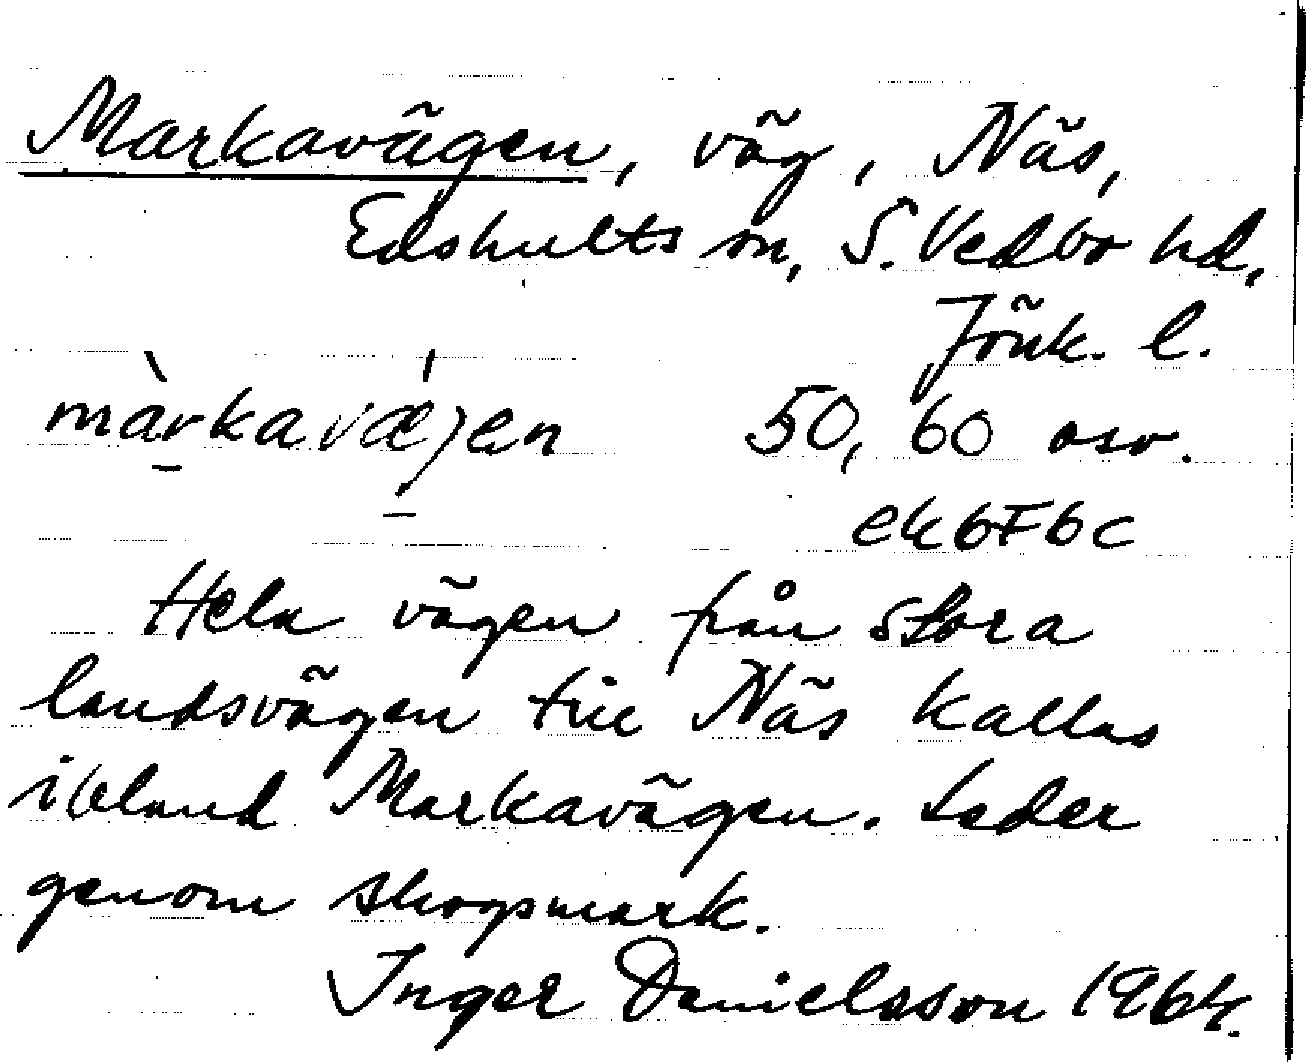 Markavägen, väg, Näs,
Edshults sn, S. Vedbo hd,
Jönk. l.
màrkavæ̀jen 50, 60 osv.
ek6F6c
Hela vägen från stora
landsvägen till Näs kallas
ibland Markavägen. Leder
genom skogsmark.
Inger Danielsson 1964.